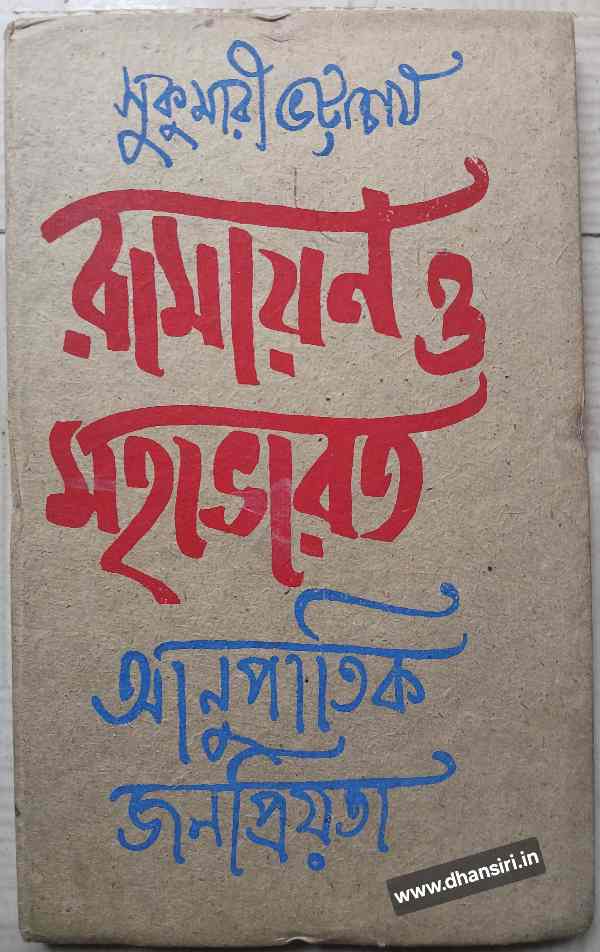 সুকুমারী ভট্টাচার্য
রামায়ন ও
মহাভারত
আনুপাতিক
জনপ্রিয়তা
www.dhansiri.in